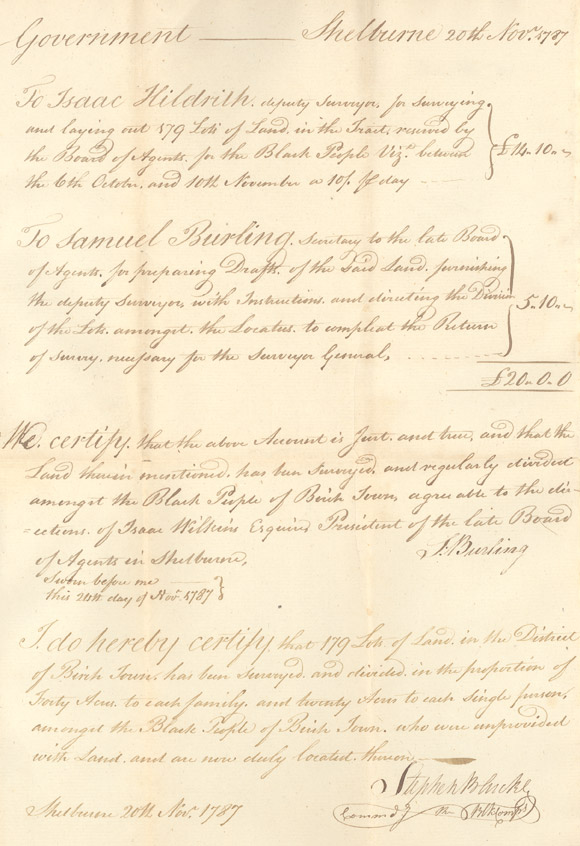 Government —— Shelburne 20th Novr. 1787
To Isaac Hildrith. deputy Surveyor, for Surveying
and laying out 179 Lots of Land. in the Tract. reserved by
the Board of Agents. for the Black People Vizt. between
the 6th Octobr. and 10th November a 10/. ⅌ day
£14.. 10..
To Samuel Burling. Secretary to the late Board
of Agents. for preparing Drafts. of the Said Land. furnishing
the deputy Surveyor, with Instructions. and directing the Division
of the Lots. amongst. the Locatees. to compleat the Return
of Survey. necessary for the Surveyor General,
5.. 10..
£20.. 0.. 0
We. certify. that the above Account is Just. and true, and that the
Land therein mentioned. has been Surveyed. and regularly divided
amongst the Black People of Birch Town, agreable to the dir-
=ections. of Isaac Wilkins Esquire President of the late Board
of Agents in Shelburne,
S. Burling
Sworn before me
this 21st day of Novr. 1787
I. do hereby certify that 179 Lots. of Land. in the District
of Birch Town. has been Surveyed. and divided. in the proportion of
Forty Acres. to each family. and twenty Acres to each Single person,
amongst the Black People of Birch Town. who were unprovided
with Land. and are now duly located thereon
Stephen Blucke
Shelburne 20th Novr. 1787